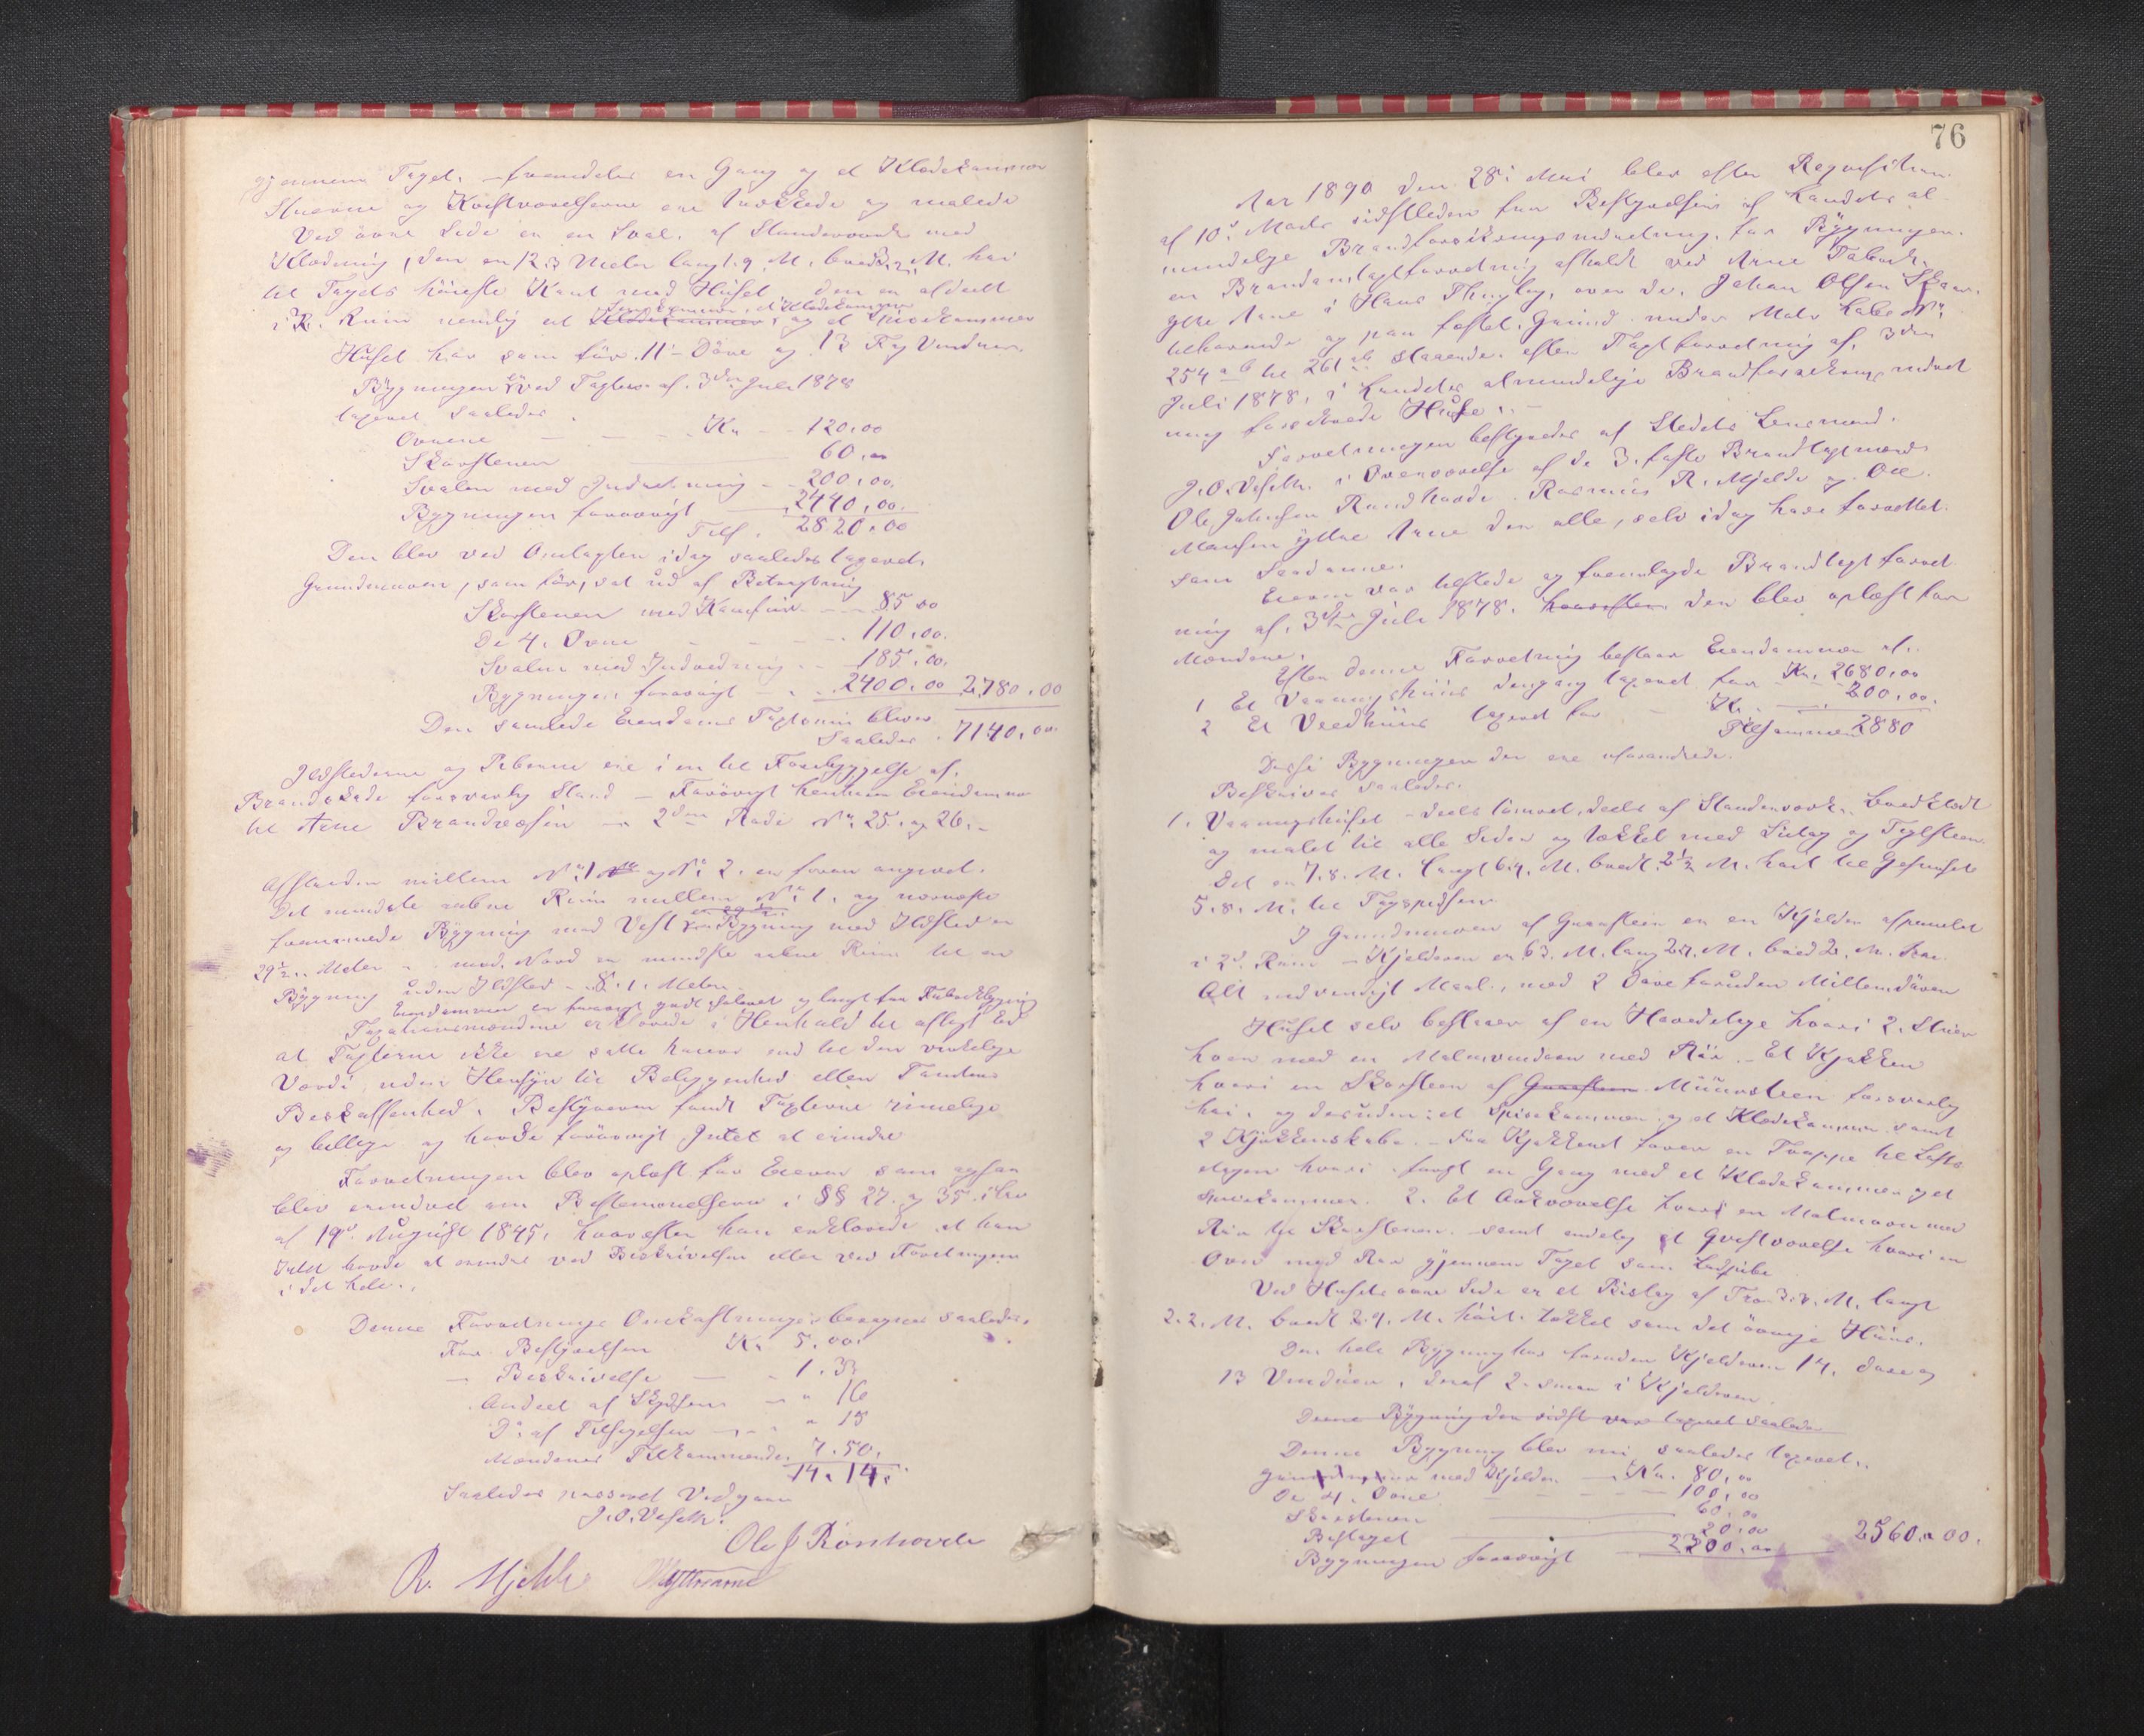 gjennem Taget. – fremdeles en Gang og et Klædekammer
Stuerne og Kvistværelserne ere trækkede og malede
Ved øvre Side er en Sval. af Standerværk med
Klædning, den er 12.3 Meter langt. 9 M. M. høi
til Tagets høieste Kant med Huset den er afdeelt
i 3. Rum nemlig et Klædekammer, og et Spisekammer
Huset har som før 11 Døre og 13 Fag Vinduer
Bygningen ved Taxten af 3die Juli 1878
taxeret saaledes
Ovnene – – – Kr – 120,00
Skorstenen 60,00
Svalen med Indredning – 200,00.
Bygningen forøvrigt 2440,00.
Tils. 2820,00
Den blev ved Omtaxten idag saaledes taxeret.
Grundmuren, som før, sat ud af Betragtning
Skorstenen med Komfur – – 85 00
De 4. Ovne – – – 110,00.
Svalen med Indredning – – 185,00.
Bygningen forøvrigt – – 2400,00 2,780,00
Den samlede Eiendoms Taxtsum bliver
Saaledes 7140,00.
Ildstederne og Piberne ere i en til Forebyggelse af
Brandskade forsvarlig Stand – Forøvrigt henhører Eiendommen
til Arne Brandvæsen – 2den Rode No 25. og 26. –
Afstanden mellem No 1 og No 2. er foran angivet.
Det mindste aabne Rum mellem No 1. og nærmeste
fremmede Bygning mod Vest Bygning med Ildsted er
29½ Meter – mod Nord er mindste aabne Rum til en
Bygning uden Ildsted – 8.1. Meter
Eiendommen er forøvrigt godt isoleret og langt fra Fabrikbygning
Taxationsmændene erklærede i Henhold til aflagt Ed
at Taxterne ikke ere satte høiere end til den virkelige
Værdi uden Hensyn til Beliggenhed eller Tomtens
Beskaffenhed. Bestyreren fandt Taxterne rimelige
og billige og havde forøvrigt Intet at erindre
Forretningen blev oplæst for Eieren som ogsaa
blev erindret om Bestemmelserne i §§ 27. og 35. i Lov
af 19de August 1845, hvorefter han erklærede at han
Intet havde at erindre ved Beskrivelsen eller ved Forretningen
i det hele.
Denne Forretnings Omkostninger beregnes saaledes.
For Bestyrelsen Kr 5.00.
– Beskrivelse – 1.33
Andeel af Skydsen – " 16
Do af Tilsigelsen – " 15
Mændenes Tilkommende 7.50.
14.14.
Saaledes passeret Vidner
J.O. Veseth.
Ole J Ronhovde
R. Mjelde MYttrearne
76
Aar 1890 den 28de Mai blev efter Reqvisition
af 10de Marts sidstleden fra Bestyrelsen af Landets al
mindelige Brandforsikringsindretning. for Bygninger
en Brandomtaxtforretning afholdt ved Arne Fabrik.
ytre Arne i Haus Thinglag, over de, Johan Olsen Skaar
tilhørende og paa fæstet Grund under Matr Løbe No
254 a b til 261 ab staaende. efter Taxtforretning af 3die
Juli 1878, i Landets almindelige Brandforsikringsindret
ning forsikrede Huse. –
Forretningen bestyredes af Stedets Lensmand
J.O. Veseth. i Overværelse af de 3. faste Brandtaxtmænd
Ole Johnsen Randhovde. Rasmus R. Mjelde og Ole
Monsen ytre Arne den alle, selv idag have forrettet
som Saadanne.
Eieren var tilstede og fremlagde Brandtaxtforret
ning af 3die Juli 1878. hvorefter den blev oplæst for
Mændene.
Efter denne Forretning bestaar Eiendommen af.
1 Et Vaaningshuus dengang taxeret for Kr. 2680,00
2 Et Veedhuus taxeret for – Kr. – 200,00.
Tilsammen 2880
Disse Bygninger der ere uforandrede.
Beskrives saaledes.
1. Vaaningshuset – deels tømret, deels af Standerværk. bordklædt
og malet til alle Sider og tækket med Sutag og Taglsteen.
Det er 7.8. M. langt 6.4. M. bredt. 2½ M. høit til Gesimset
5.8. M. til Tagspidsen
I Grundmuren af Graasteen er en Kjelder afpanelet
i 2de Rum – Kjelderen er 6.3. M. lang 2.7. M. bred 2. M. høi
Alt indvendigt Maal., med 2 Døre foruden Mellemdøren
Huset selv bestaar af en Hovedetage hvori 2. Stuer
hver med en Malmvindovn med Rør. – Et Kjøkken
hvori en Skorsteen af Graasteen Muursteen forsvarlig
høi, og desuden et Spisekammer og et Klædekammer samt
2 Kjøkkenskabe. – Fra Kjøkkenet fører en Trappe til Lofts
etagen hvori først en Gang med et Klædekammer og et
Spisekammer. 2. Et Arkværelse hvori en Malmovn med
Rør til Skorstenen. samt endelig et Qvistværelse hvori en
Ovn med Rør gjennem Taget som Ludpibe
Ved Husets øvre Side er et Bislag af Træ 3.7. M. langt
2.2. M. bredt 2.9. M. høit. tækket som det øvrige Huus.
Den hele Bygning har foruden Kjelderen 14. døre og
13 Vinduer, deraf 2. smaa i Kjelderen.
Denne Bygning den sidst var taxeret saaledes
Denne Bygning blev nu saaledes taxeret.
Grundmuren med Kjelder – Kr. 80,00
De 4. Ovne – – – 100,00
Skorstenen 60,00
Bislaget 20,00
Bygningen forøvrigt 2300,00 2560,00.